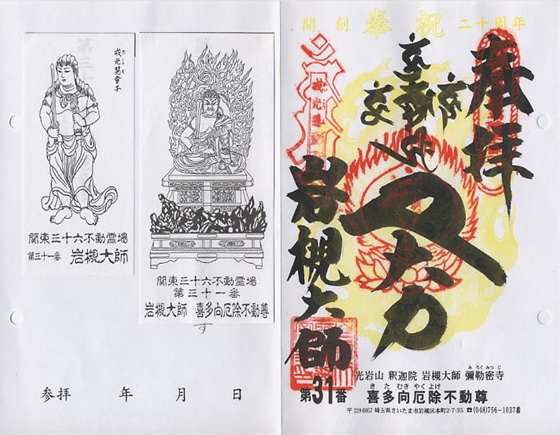 戒光慧童子
関東三十六不動霊場
第三十一番 岩槻大師
関東三十六不動霊場
第三十一番
岩槻大師 喜多向厄除不動尊
参拝 年 月 日
開創 奉祝 二十周年
奉拝
岩槻大師
光岩山 釈迦院 岩槻大師 彌勒密寺
みろくみつじ
第31番 喜多向厄除不動尊
きたむきやくよけ
〒339-0057 埼玉県さいたま市岩槻区本町2-7-35 ☎(048)756-1037番